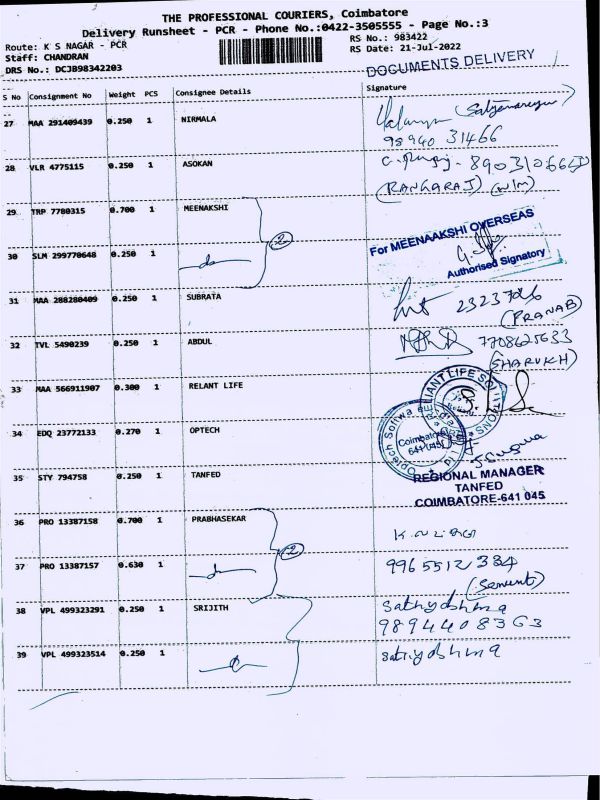 THE PROFESSIONAL COURIERS, Coimbatore
Delivery Runsheet - PCR - Phone No.:0422-3505555 - Page No.:3
Route: K S NAGAR - PCR
RS No.: 983422
Staff: CHANDRAN
RS Date: 21-Jul-2022
DRS No.: DCJB98342203
DOCUMENTS DELIVERY
S No Consignment No Weight PCS Consignee Details Signature
27 MAA 291409439 0.250 1 NIRMALA
98940 31466
28 VLR 4775115 0.250 1 ASOKAN
(RANGARAJ)
29 TRP 7780315 0.700 1 MEENAKSHI
2
For MEENAAKSHI OVERSEAS
Authorised Signatory
30 SLM 299770648 0.250 1 do
31 MAA 288280409 0.250 1 SUBRATA
(PRANAB)
32 TVL 5490239 0.250 1 ABDUL
7708625633
(SHARUKH)
33 MAA 566911907 0.300 1 RELANT LIFE
RELIANT LIFE SOLUTIONS
34 EDQ 23772133 0.270 1 OPTECH
Coimbatore
641 045
35 STY 794758 0.250 1 TANFED
REGIONAL MANAGER
TANFED
COIMBATORE-641 045
36 PRO 13387158 0.700 1 PRABHASEKAR
2
37 PRO 13387157 0.630 1 do
9965512334
(Servent)
38 VPL 499323291 0.250 1 SRIJITH
9894408363
39 VPL 499323514 0.250 1